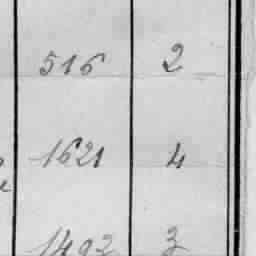 516 2
1621 4
1492 3